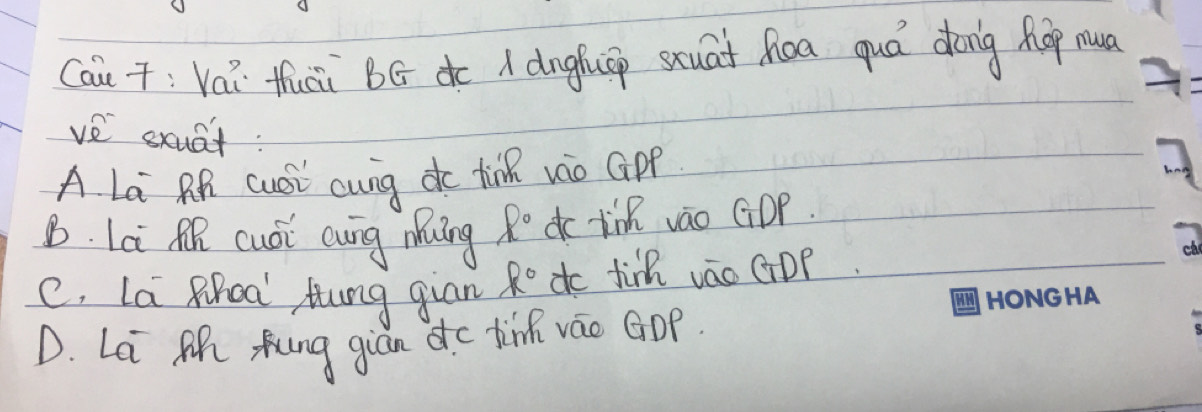 Câu 7: Vải thiều BG đc 1 dnghiệp sxuất hoa quả đóng hộp mua
về sxuất:
A. Là hh cuối cùng đc tính vào GDP.
B. Là hh cuối cùng nhưng ko đc tính vào GDP.
C. Là hhoá trung gian ko đc tính vào GDP.
HH HONG HA
D. Là hh trung gian đc tính vào GDP.